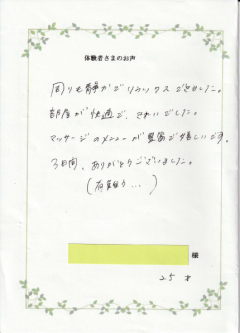 体験者さまのお声
周りも静かでリラックスできました。
部屋が快適で、きれいでした。
マッサージのメニューが豊富で嬉しいです。
3日間、ありがとうございました。
様
25才